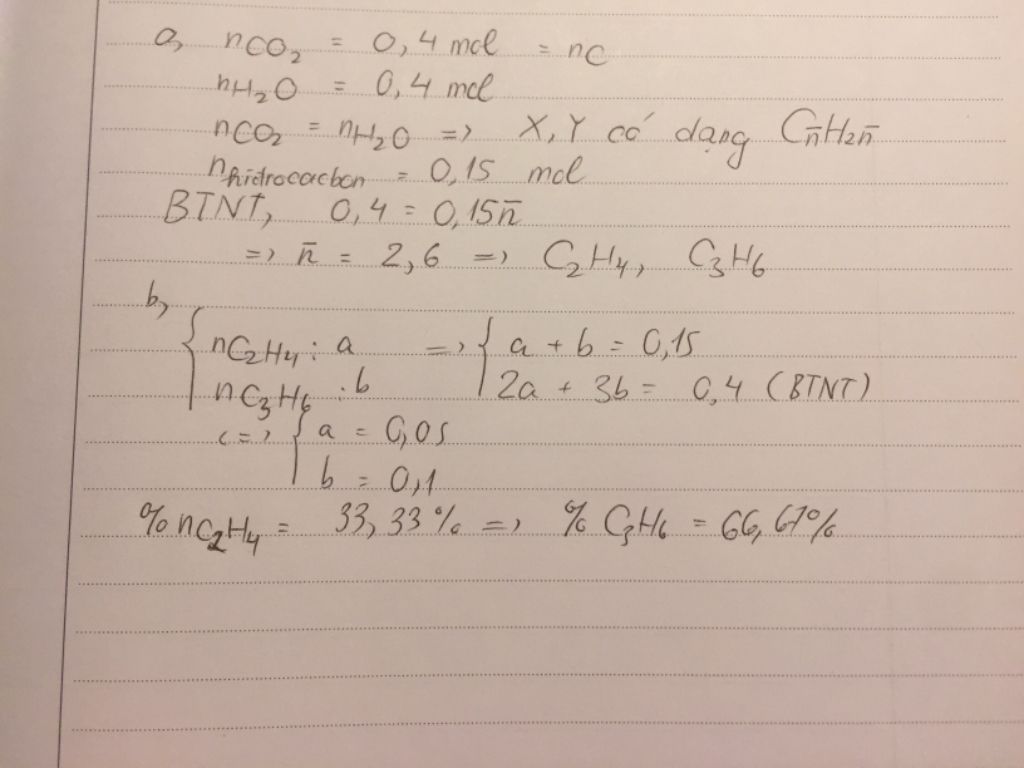 a, nCO₂ = 0,4 mol = nC
nH₂O = 0,4 mol
nCO₂ = nH₂O => X, Y có dạng Cn̄H2n̄
nhidrocacbon = 0,15 mol
BTNT, 0,4 = 0,15n̄
=> n̄ = 2,6 => C₂H₄, C₃H₆
b,
{ nC₂H₄ : a => { a + b = 0,15
nC₃H₆ : b 2a + 3b = 0,4 (BTNT)
<=> { a = 0,05
b = 0,1
% nC₂H₄ = 33,33% => % C₃H₆ = 66,67%